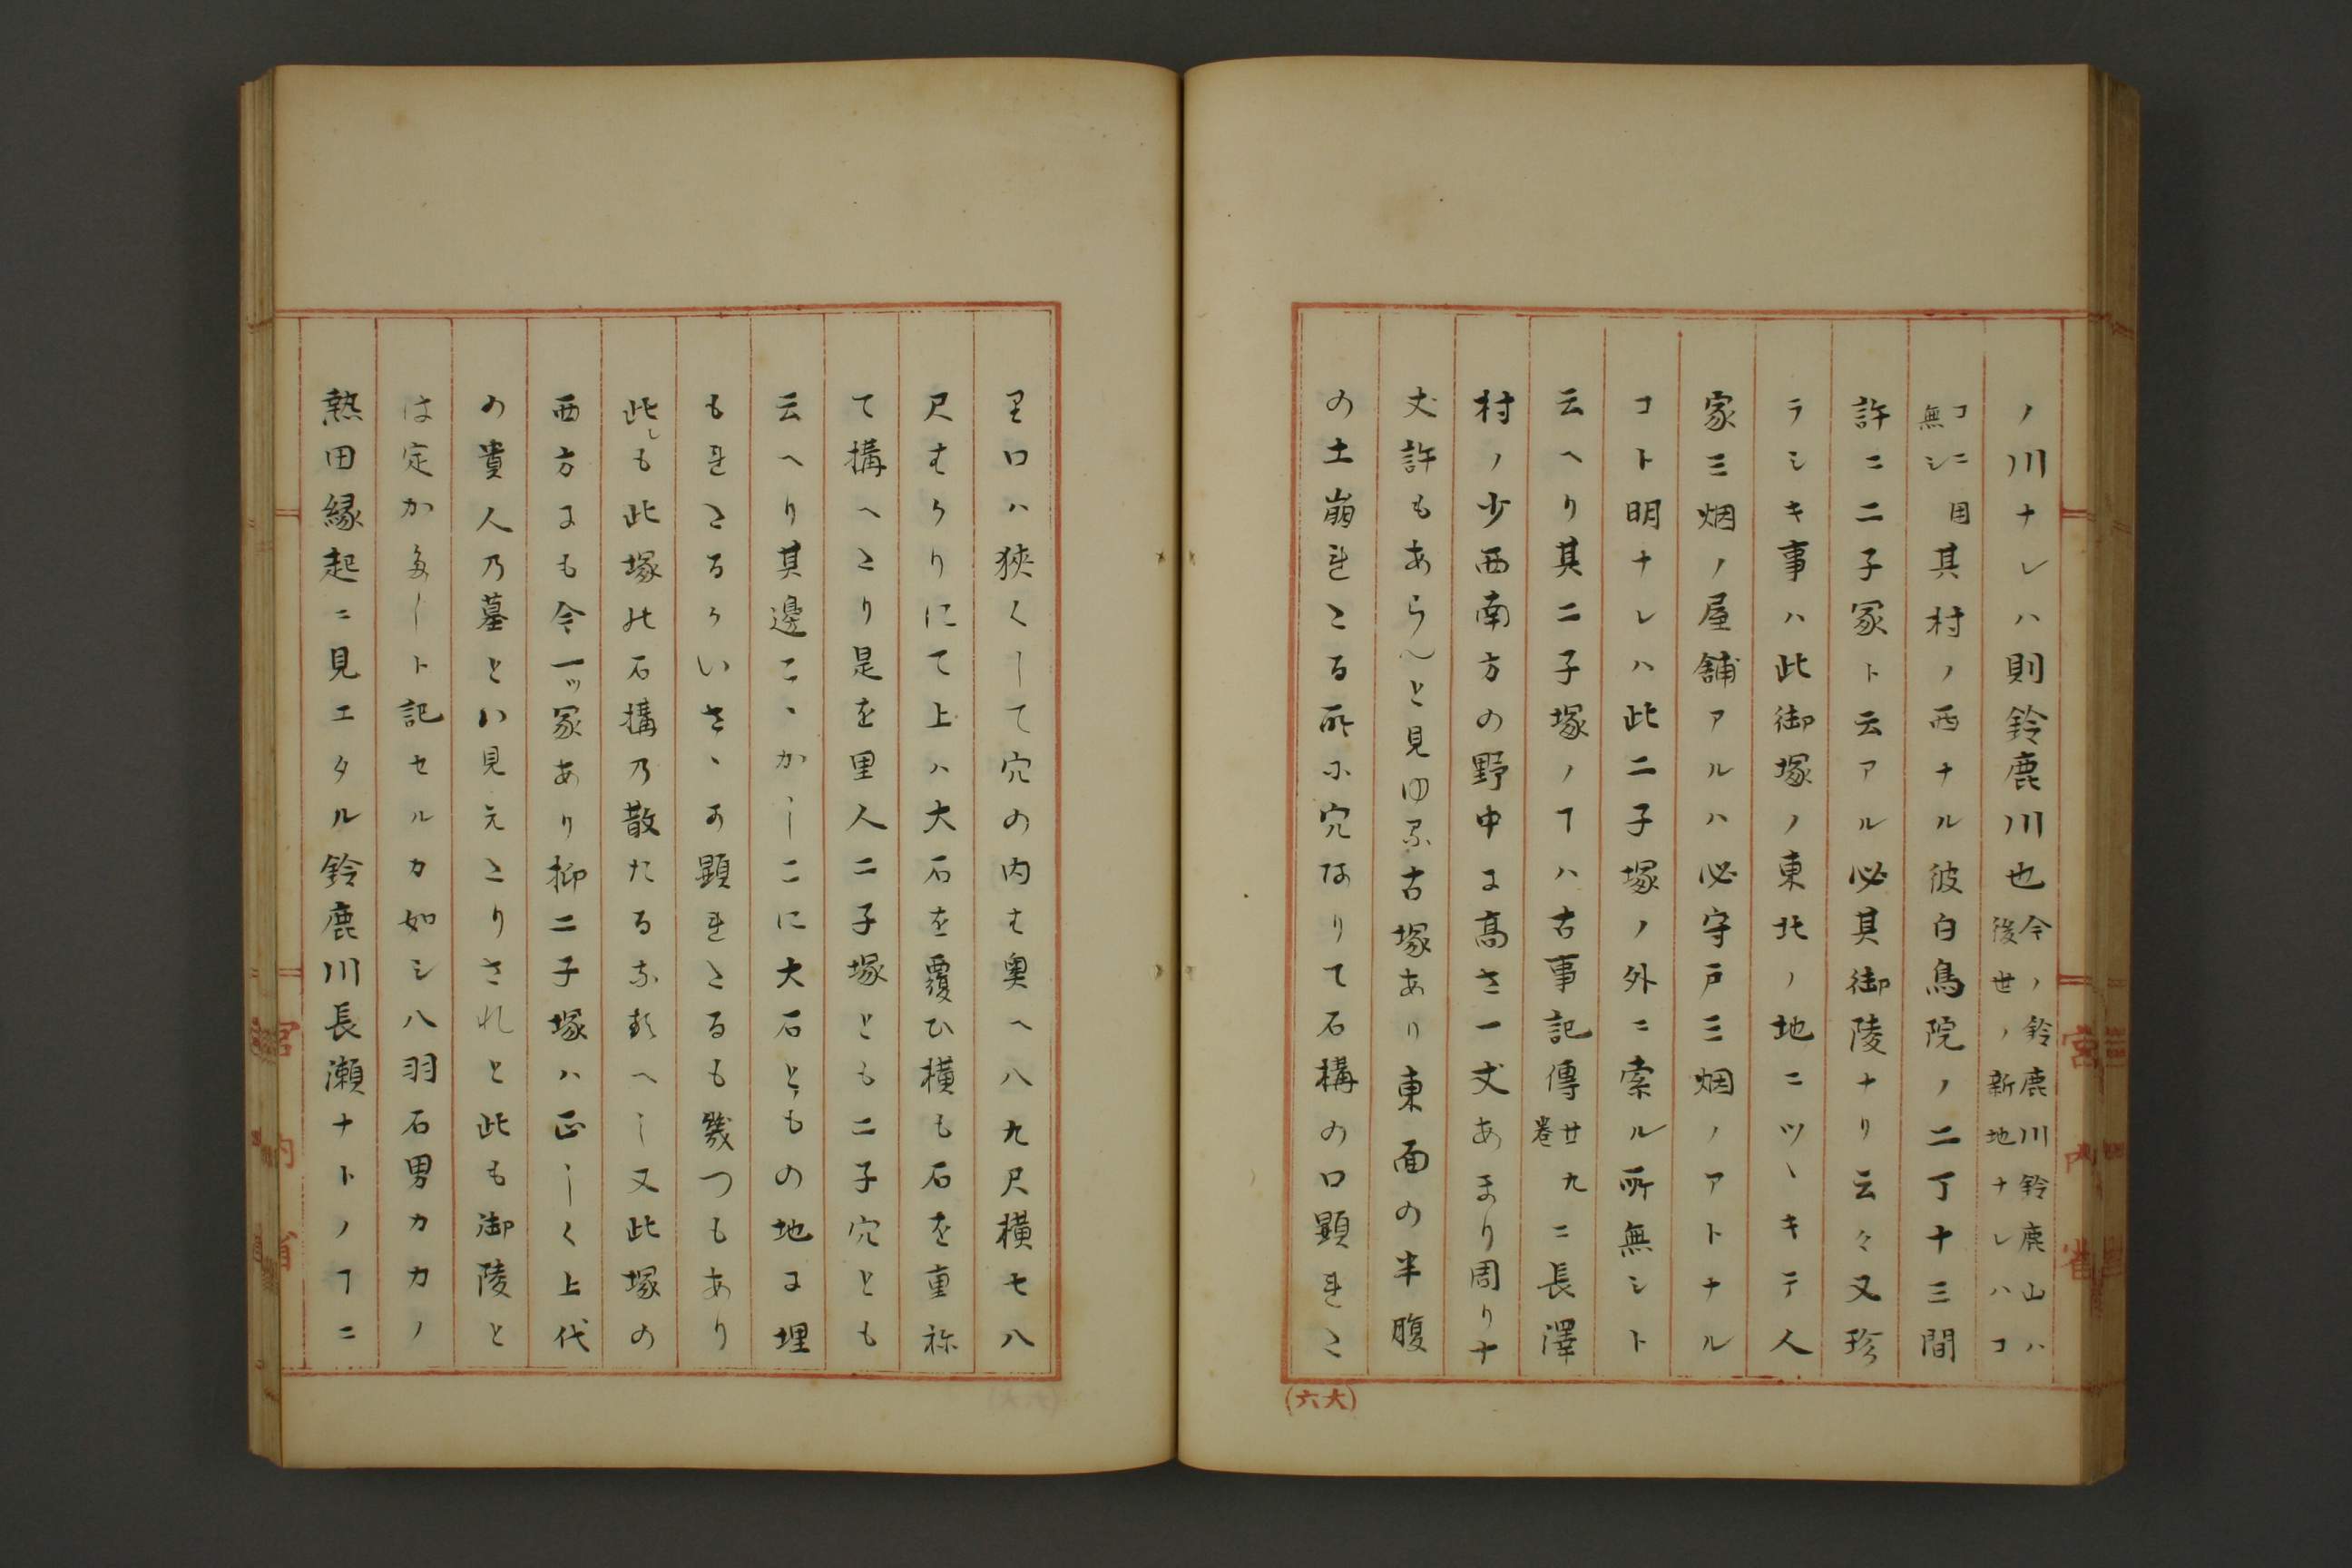 ノ川ナレハ則鈴鹿川也今ノ鈴鹿川鈴鹿山ハ後世ノ新地ナレハコ
コニ用無シ其村ノ西ナル彼白鳥院ノ二丁十三間
許ニ二子冢ト云アル必其御陵ナリ云々又珍
ラシキ事ハ此御塚ノ東北ノ地ニツヽキテ人
家三烟ノ屋舗アルハ必守戸三烟ノアトナル
コト明ナレハ此二子塚ノ外ニ索ル所無シト
云ヘリ其二子塚ノヿハ古事記傳廿九卷ニ長澤
村ノ少西南方の野中に高さ一丈あまり周り十
丈許もあらんと見ゆる古塚あり東面の半腹
の土崩れたる所に穴ありて石構の口顕れた
里口ハ狹くして穴の内は奥へ八九尺横七八
尺はかりにて上ハ大石を覆ひ横も石を重祢
て構へたり是を里人二子塚とも二子穴とも
云へり其邊こヽかしこに大石とものの地に埋
もれたるかいさヽか顕れたるも幾つもあり
此レも此塚の石構の散たるなるへし又此塚の
西方にも今一ツ冢あり抑二子塚ハ正しく上代
の貴人の墓とハ見えたりされと此も御陵と
は定かたしト記セルカ如シ八羽石男カカカノ
熱田縁起ニ見エタル鈴鹿川長瀬ナトノヿニ
(六大)
宮内省